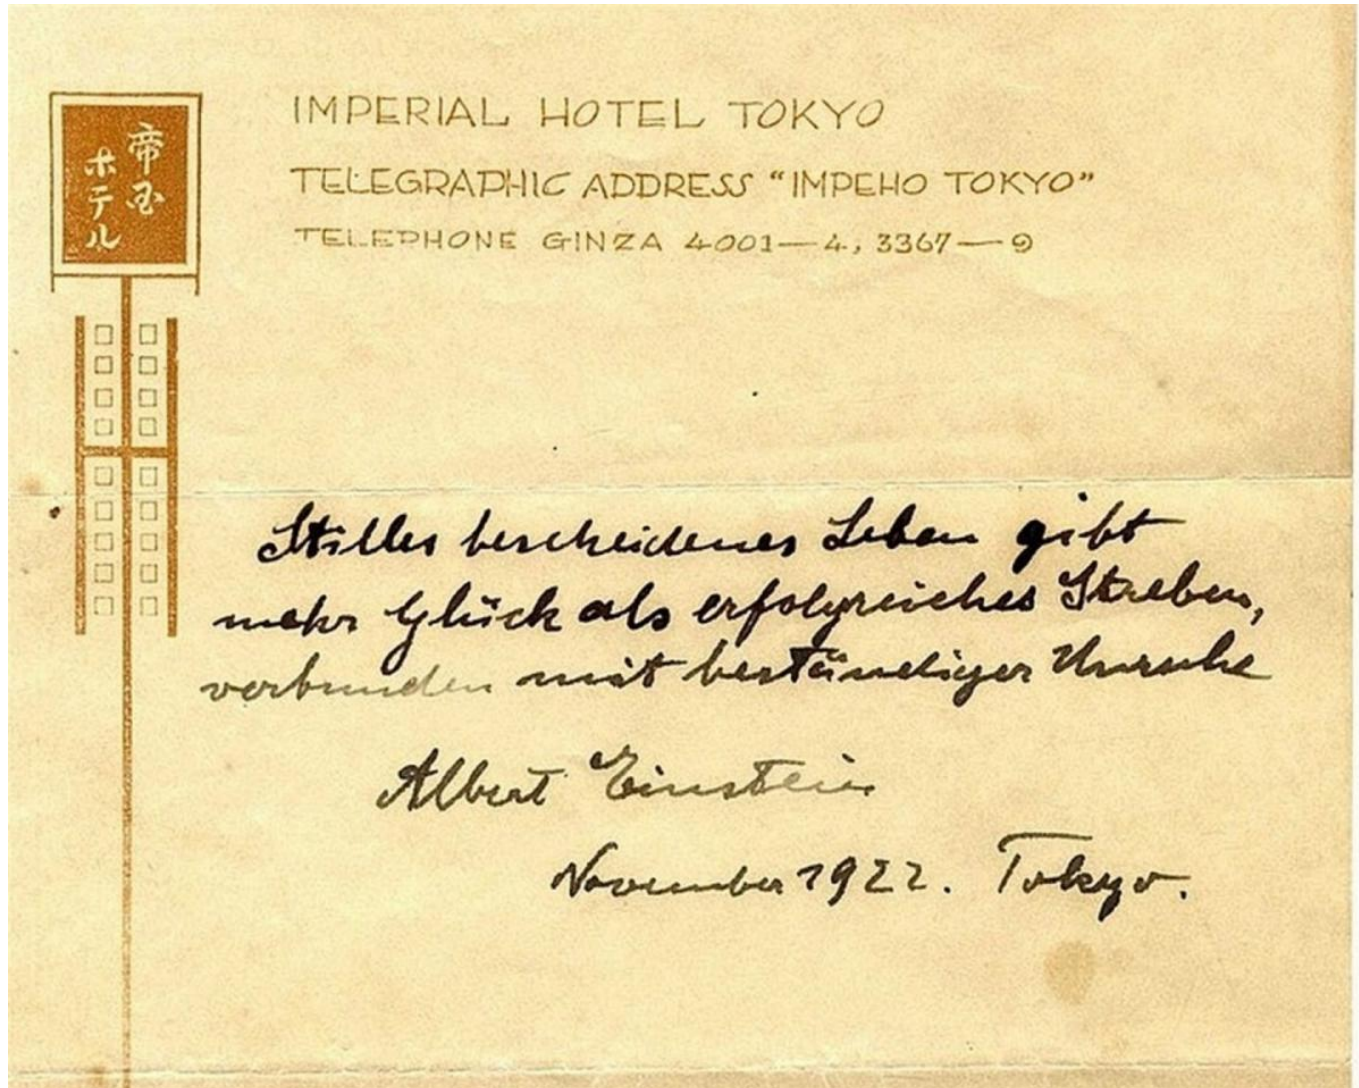 帝国
ホテル
IMPERIAL HOTEL TOKYO
TELEGRAPHIC ADDRESS “IMPEHO TOKYO”
TELEPHONE GINZA 4001—4, 3367—9
Stilles bescheidenes Leben gibt
mehr Glück als erfolgreiches Streben,
verbunden mit beständiger Unruhe
Albert Einstein
November 1922. Tokyo.